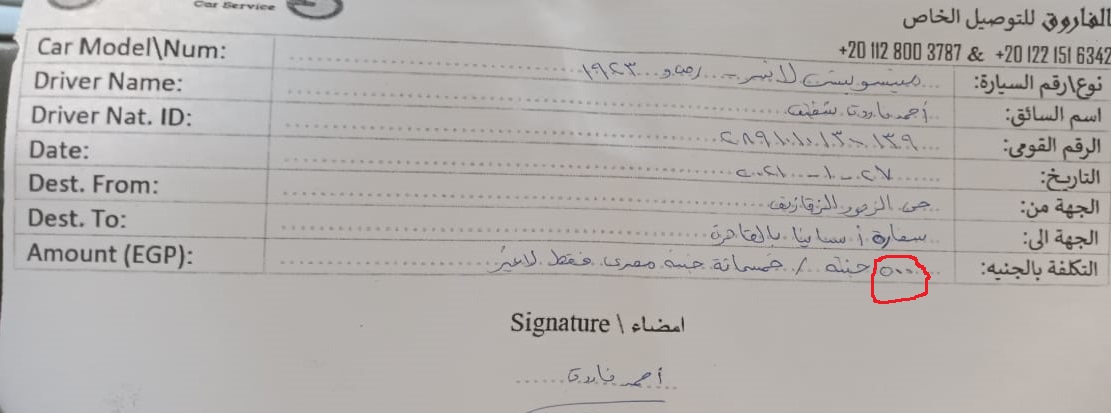 Car Service
الفاروق للتوصيل الخاص
+20 112 800 3787 & +20 122 151 6342
Car Model\Num: ميتسوبيشي لانسر - ١٩٤٣ نوع\رقم السيارة:
Driver Name: أحمد فاروق اسم السائق:
Driver Nat. ID: الرقم القومي:
Date: ٢٧ - ١ - ٢٠٢١ التاريخ:
Dest. From: حي الزهور الزقازيق الجهة من:
Dest. To: سفارة أسبانيا بالقاهرة الجهة الى:
Amount (EGP): ٥٠٠ جنيه / خمسمائة جنيه مصري فقط لاغير التكلفة بالجنيه:
Signature \ امضاء
أحمد فاروق